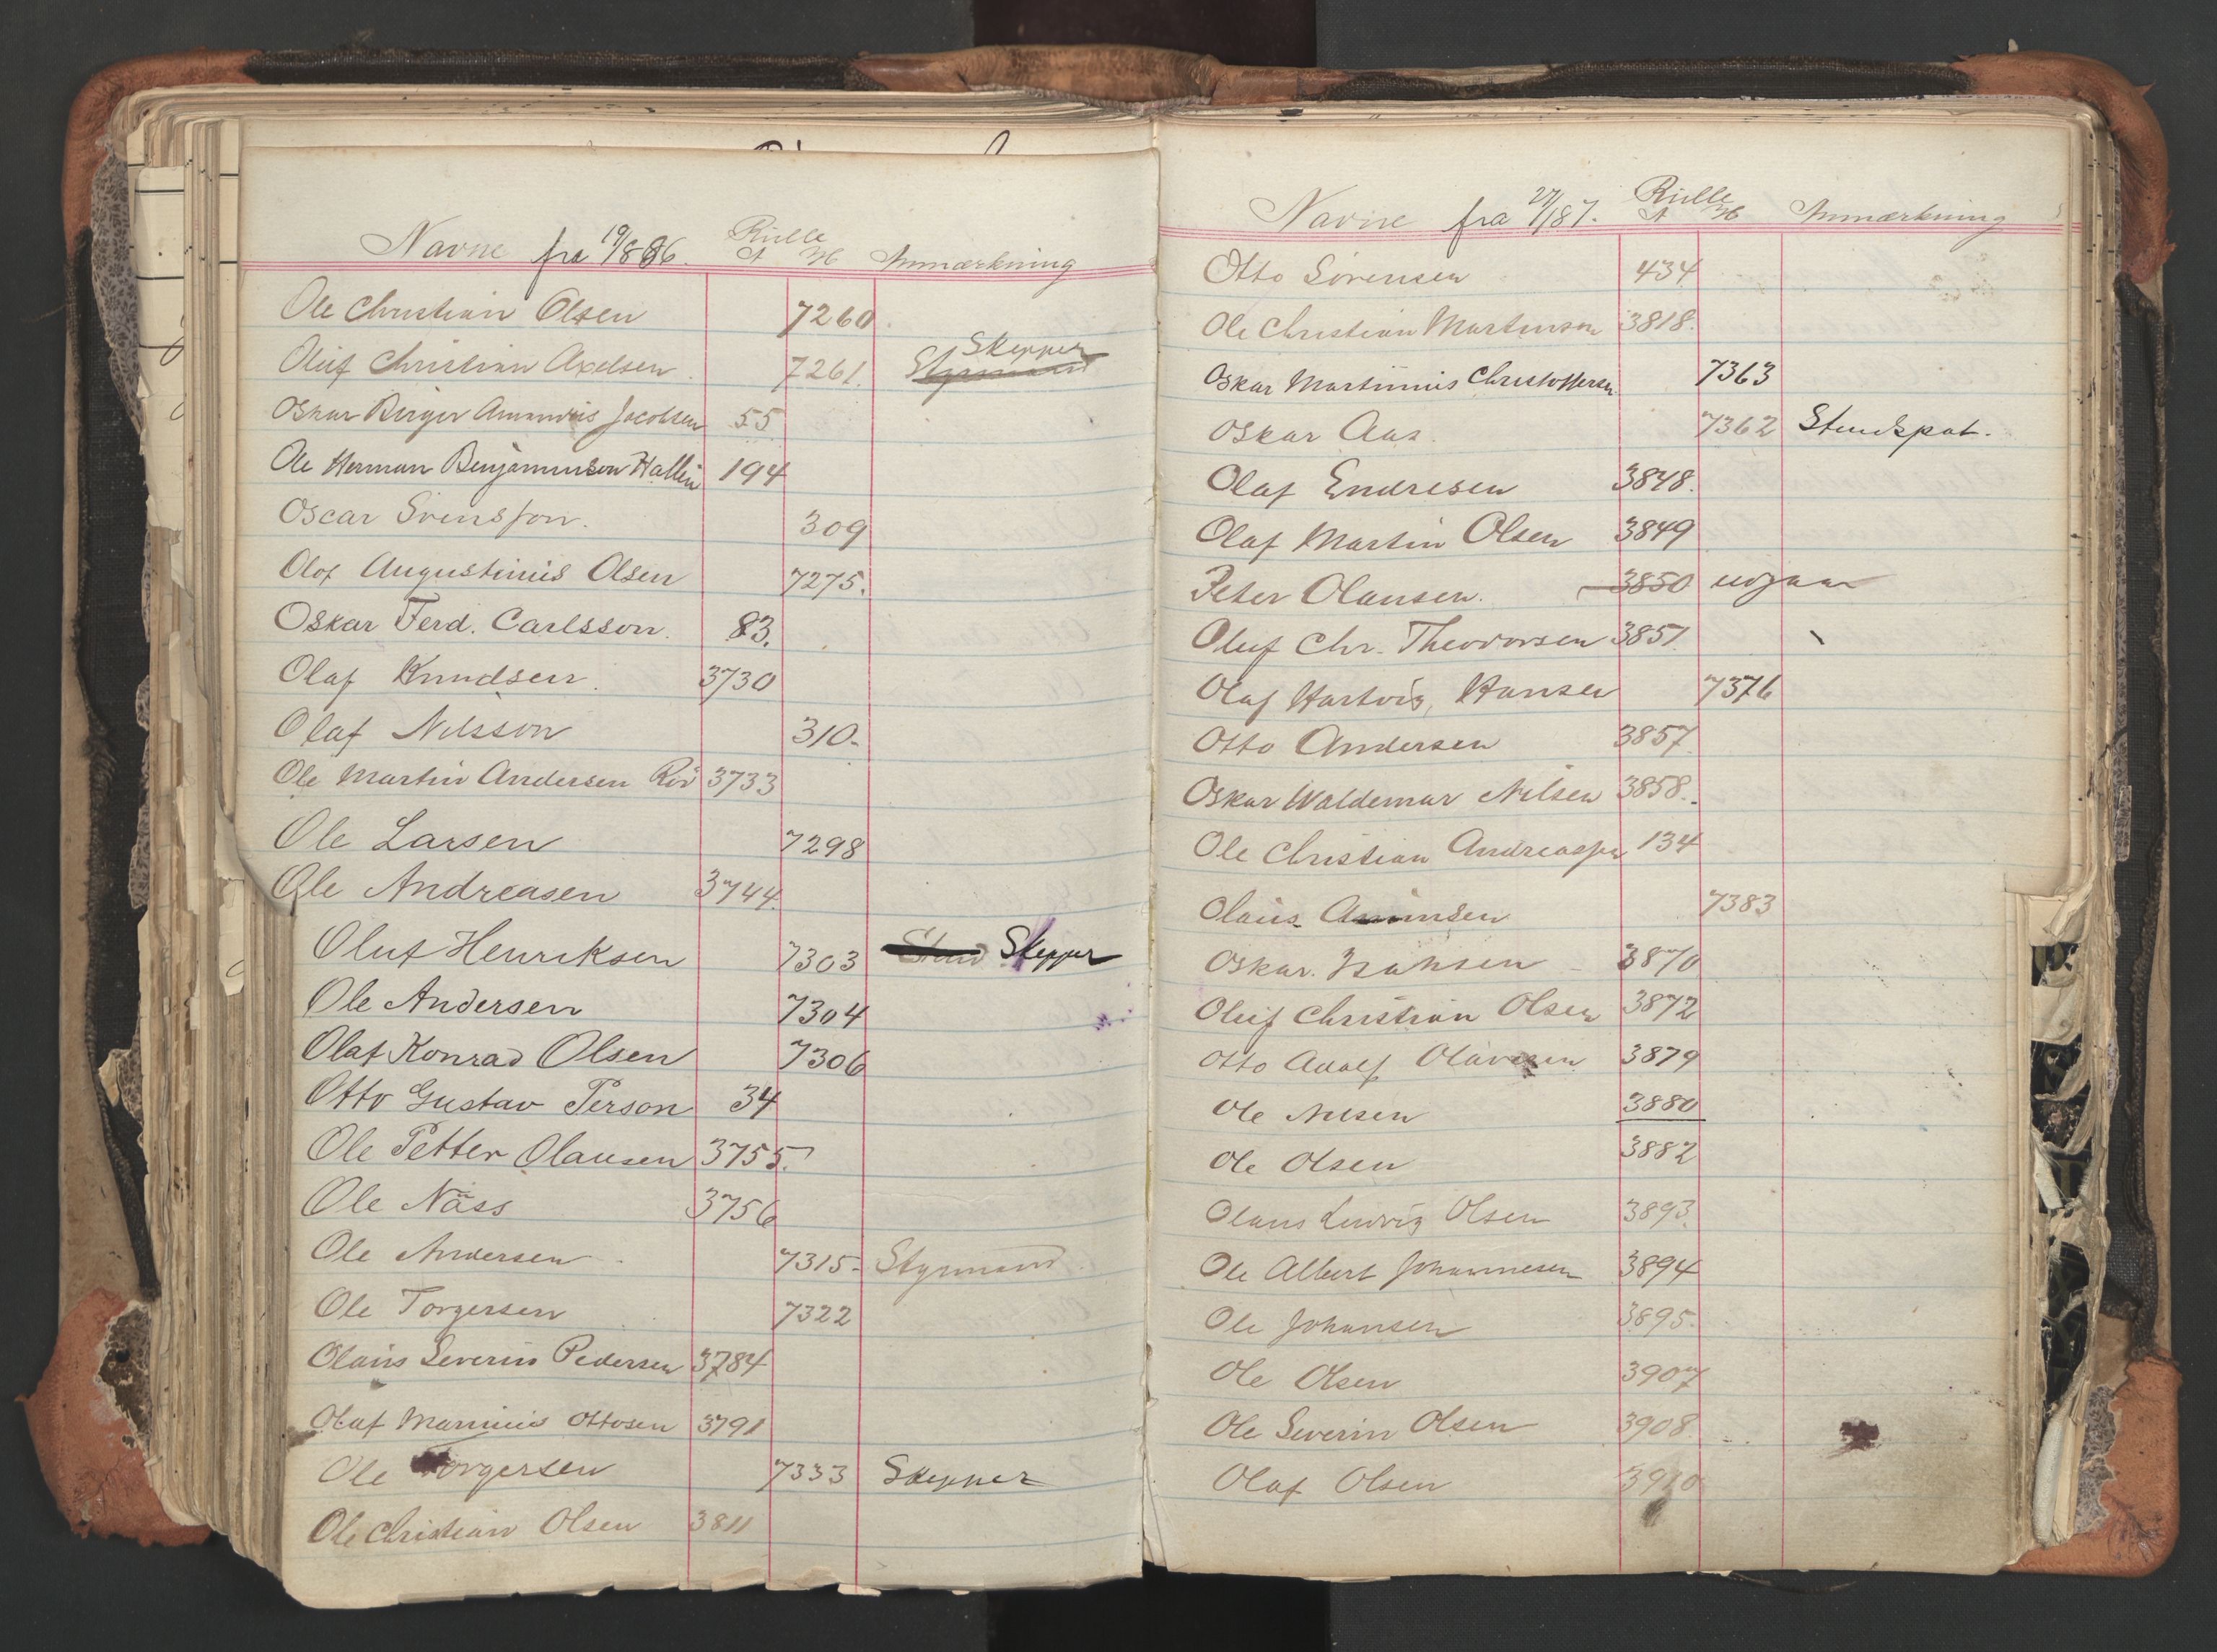 Navne fra 19/886. Rulle A H Anmærkning
Ole Christian Olsen 7260
Oluf Christian Axelsen 7261. Styrmand Skepper
Oskar Birger Amandus Jacobsen 55
Ole Herman Benjaminsen Hallin 194
Oscar Svensson. 309
Olof Augustinus Olsen 7275.
Oskar Ferd. Carlsson. 83.
Olaf Knudsen. 3730
Olaf Nilsson 310.
Ole Martin Andersen Röd 3733
Ole Larsen 7298
Ole Andreasen 3744.
Oluf Henriksen 7303 Skepper
Ole Andersen 7304
Olaf Konrad Olsen 7306
Otto Gustav Person 34
Ole Petter Olausen 3755.
Ole Näss 3756
Ole Andersen 7315. Styrmand
Ole Torgersen 7322
Olaus Severin Pedersen 3784
Olaf Marinius Ottosen 3791
Ole Torgersen 7333 Skepper
Ole Christian Olsen 3811
Navne fra 27/187. Rulle A H Anmærkning
Otto Sörensen 434
Ole Christian Martinsen 3818.
Oskar Martinius Christoffersen 7363
Oskar Aas. 7362 Stuckpat.
Olaf Endresen 3848.
Olaf Martin Olsen 3849
Peter Olausen. 3850 udgaar
Oluf Chr. Theodorsen 3851.
Olaf Hartvig Hansen 7376
Otto Andersen 3857.
Oskar Waldemar Nilsen 3858.
Ole Christian Andreassen 134
Olaus 7383
Oskar. Isaksen 3870
Oluf Christian Olsen 3872
Otto Adolf Olavesen 3879
Ole Nilsen 3880
Ole Olsen 3882
Olaus Ludvig Olsen 3893.
Ole Albert Johannesen 3894
Ole Johansen 3895.
Ole Olsen 3907
Ole Severin Olsen 3908
Olaf Olsen 3910